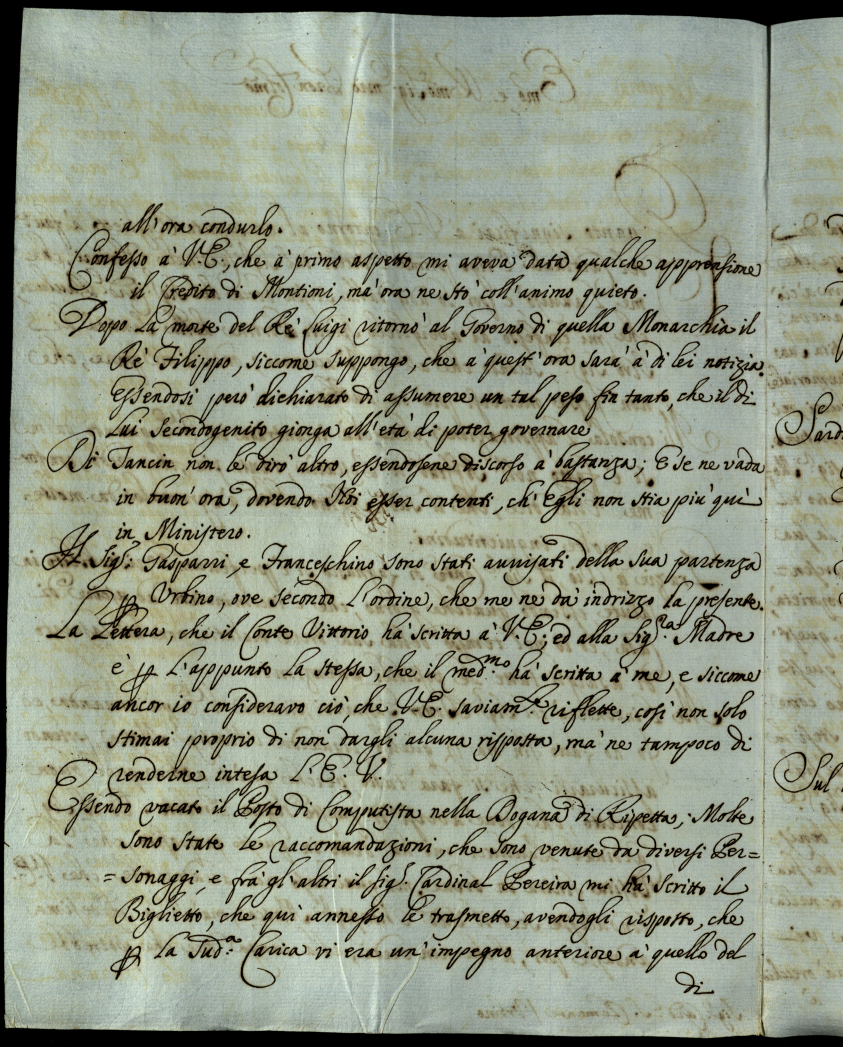 all'ora condurlo.
Confesso à V.E., che à primo aspetto mi aveva data qualche apprensione
il Credito di Montioni, mà ora ne stò coll'animo quieto.
Dopo la morte del Rè Luigi ritornò al Governo di quella Monarchia il
Rè Filippo, siccome suppongo, che à quest'ora sarà à di lei notizia.
essendosi però dichiarato di assumere un tal peso fin tanto, che il di
lui secondogenito gionga all'età di poter governare
Di Tancin non le dirò altro, essendosene discorso à bastanza; E se ne vada
in buon'ora, dovendo Noi esser contenti, ch'Egli non stia più quì
in Ministero.
Il Sig.: Gasparri, e Franceschino sono stati avvisati della sua partenza
p Urbino, ove secondo l'ordine, che me ne dà indrizzo la presente.
La Lettera, che il Conte Vittorio hà scritta à V.E.; ed alla Sig.ra Madre
è p l'appunto la stessa, che il med.mo hà scritta à me, e siccome
ancor io consideravo ciò, che V.E. saviam.te riflette, così non solo
stimai proprio di non dargli alcuna risposta, mà ne tampoco di
renderne intesa l'E.V.
Essendo vacato il Posto di Computista nella Dogana di Ripetta, Molte
sono state le raccomandazioni, che sono venute da diversi Per=
=sonaggi, e frà gl'altri il Sig.r Cardinal Pereira mi hà scritto il
Biglietto, che quì annesso le trasmetto, avendogli risposto, che
p la sud.a Carica vi era un'impegno anteriore à quello del
di